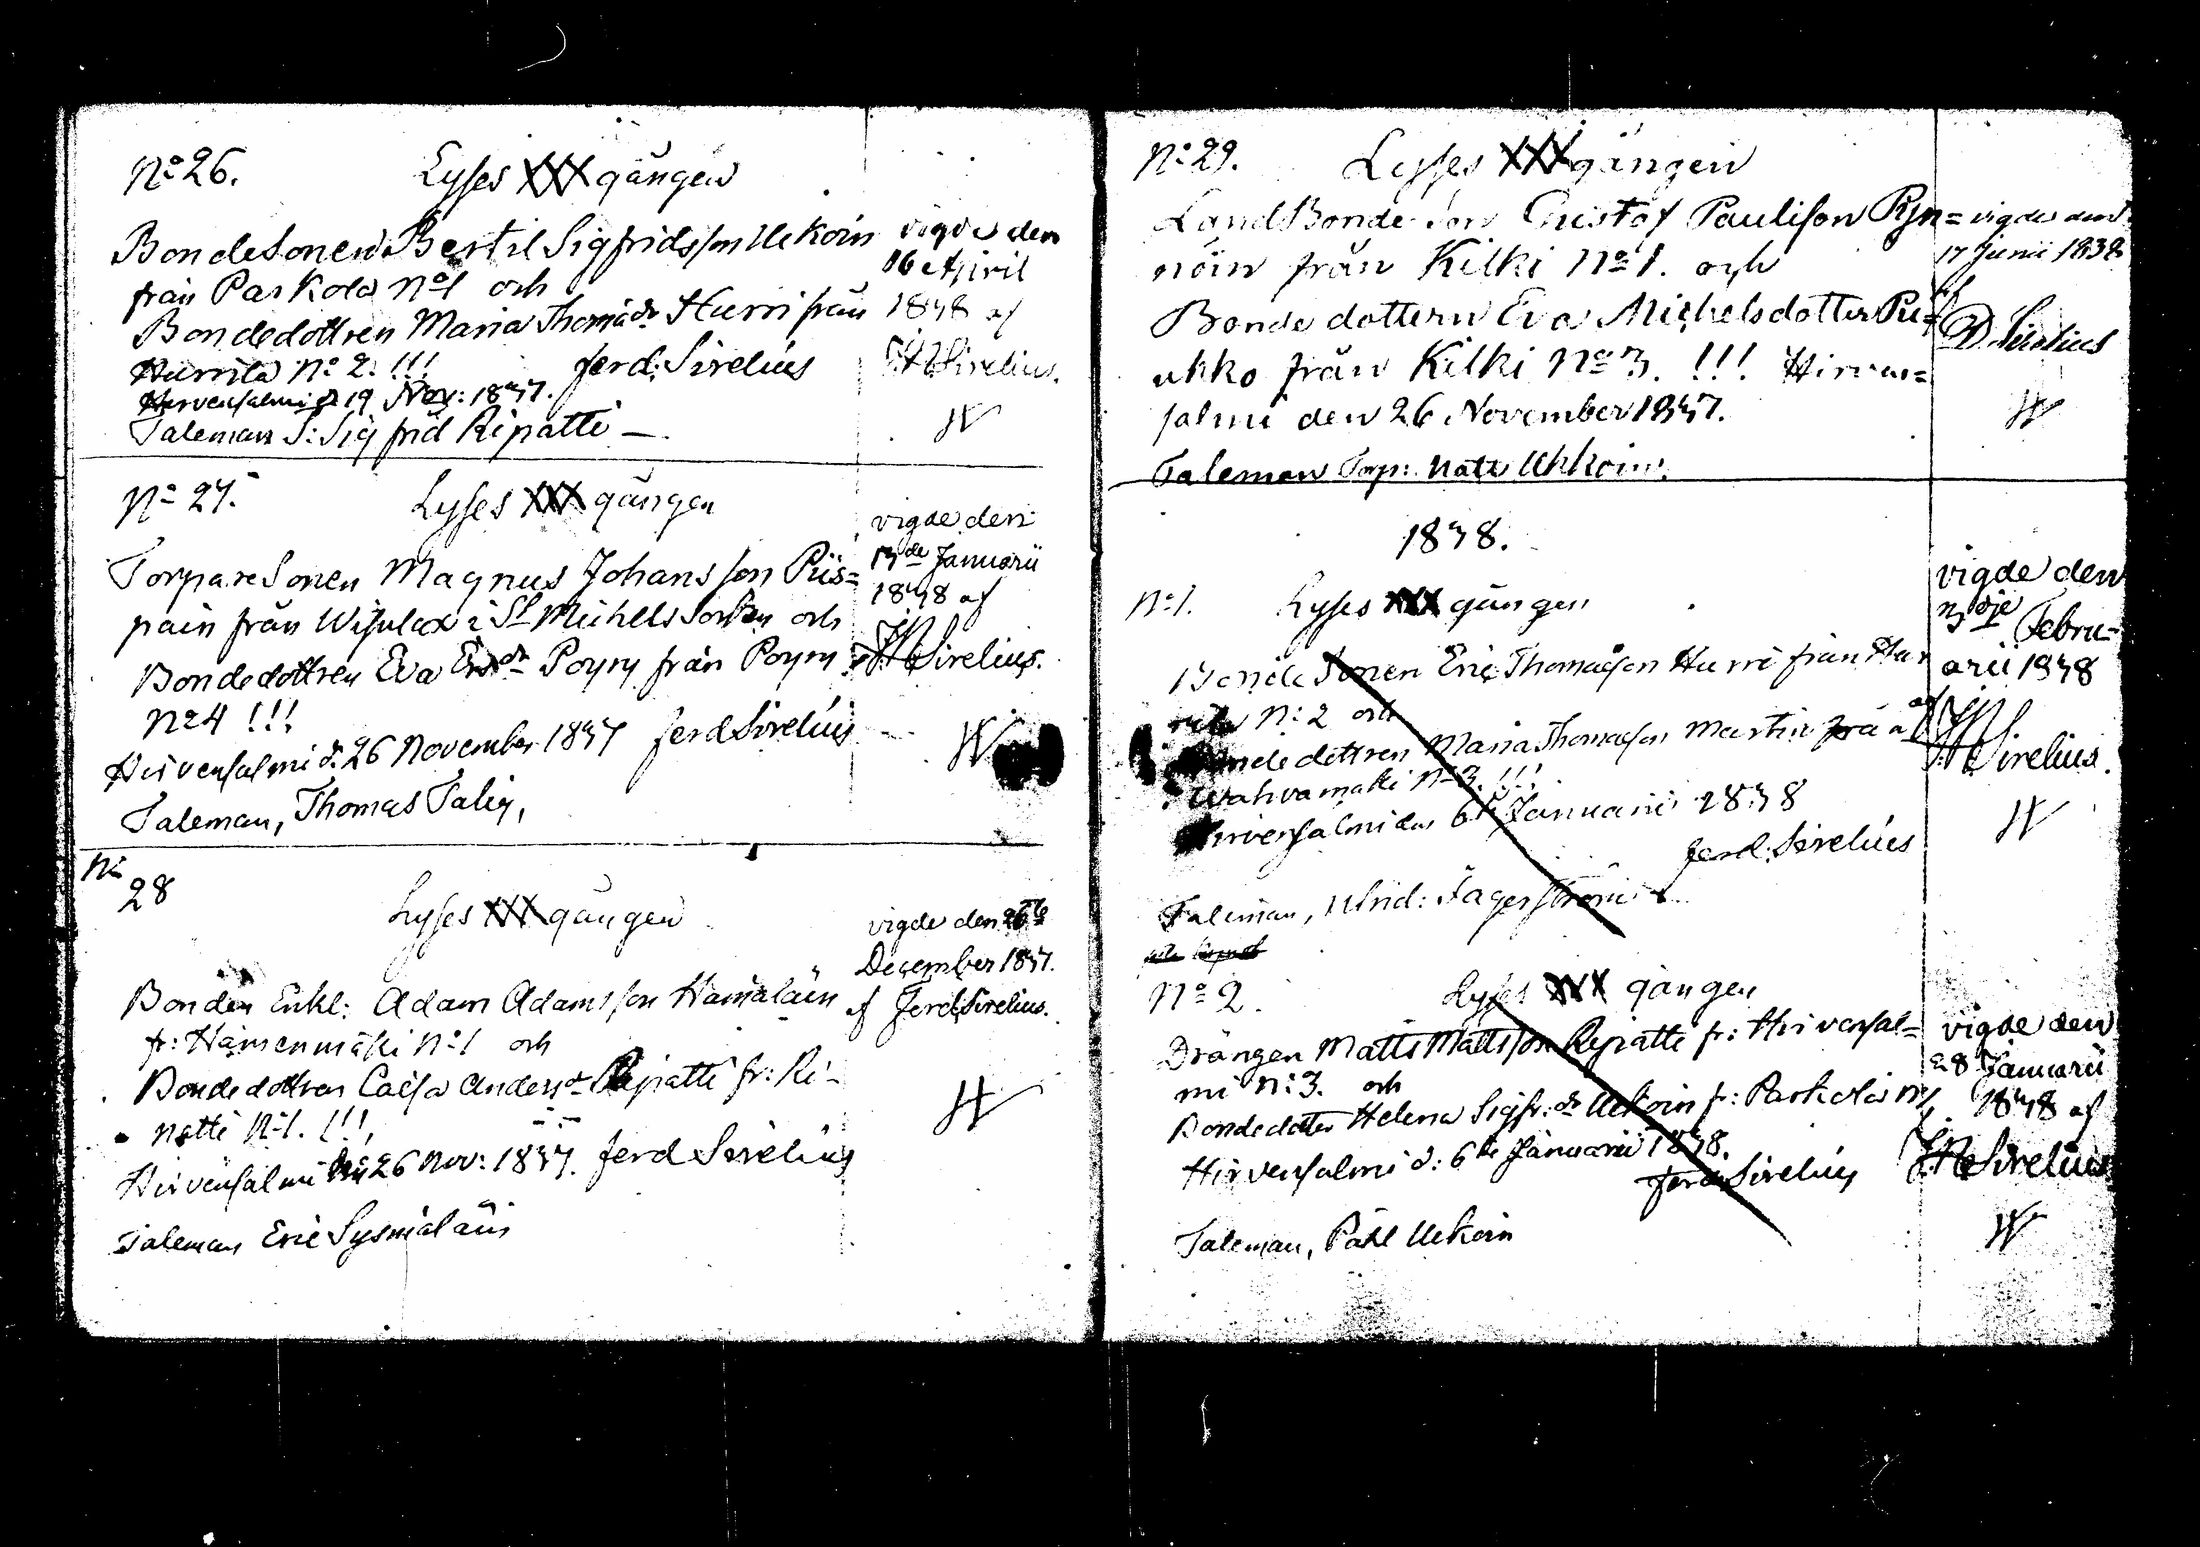 No 26.
Lyses XXX gången
Bondesonen Bertil Sigfridsson Uekoin
från Parkola No 1 och
Bondedottren Maria Thomædr Hurri från
Hurrila No 2. !!! Ferd: Sirelius
Hirvensalmi d 19 Nov: 1837.
Taleman S: Sigfrid Ripatti —
vigde den
16 April
1838 af
Sirelius.
No 27.
Lyses XXX gången
Torparesonen Magnus Johansson Piis=
pain från Wisulax i St Michels Socken och
Bondedottren Eva Ersdr Poyry från Poyry
No 4 !!!
Hirvensalmi d. 26 November 1837 Ferd Sirelius
Taleman, Thomas Taliq,
vigde den
Januarii
1838 af
Sirelius.
No
28
Lyses XXX gången
Bonden Enkl: Adam Adamsson Hämäläin
fr: Hämenmäki No 1 och
Bondedottren Caisa Andersdr Ripatti fr: Ri-
patti No 1. !!!
Hirvensalmi 26 Nov: 1837. Ferd Sirelius
Taleman Eric Sysmäläin
vigde den 26te
December 1837.
af Ferd Sirelius.
No 29.
Lysses XXX gången
LandBonde Son Gustaf Paulison Ryn=
nöin från Kilki No 1. och
Bonde dottern Eva Michelsdotter Pu=
ukko från Kilki No 3. !!! Hirven=
salmi den 26 November 1837.
Taleman Torp: Matts Ukkoin.
vigdes den
17 Junii 1838
af
Sirelius
1838.
No 1.
Lyses XXX gången
Bonde Sonen Eric Thomasson Hurri från Hur
rila No 2 och
Bondedottren Maria Thomasson Martin från
Wahvamäki No 3. !!!
Hirvensalmi den 6te Januarii 1838
Ferd: Sirelius
Taleman, Und: Fagerström
vigde den
3dje Febru-
arii 1838
af
Sirelius.
No 2.
Lyses XXX gången
Drängen Matts Mattsson Ripatti fr: Hirvensal=
mi No 3. och
Bondedotter Helena Sigfr: dr Uekoin fr: Parkola No 1
Hirvensalmi d: 6te Januarii 1838.
Ferd Sirelius
Taleman, Påhl Uekoin
vigde den
28 Januarii
1838 af
Sirelius